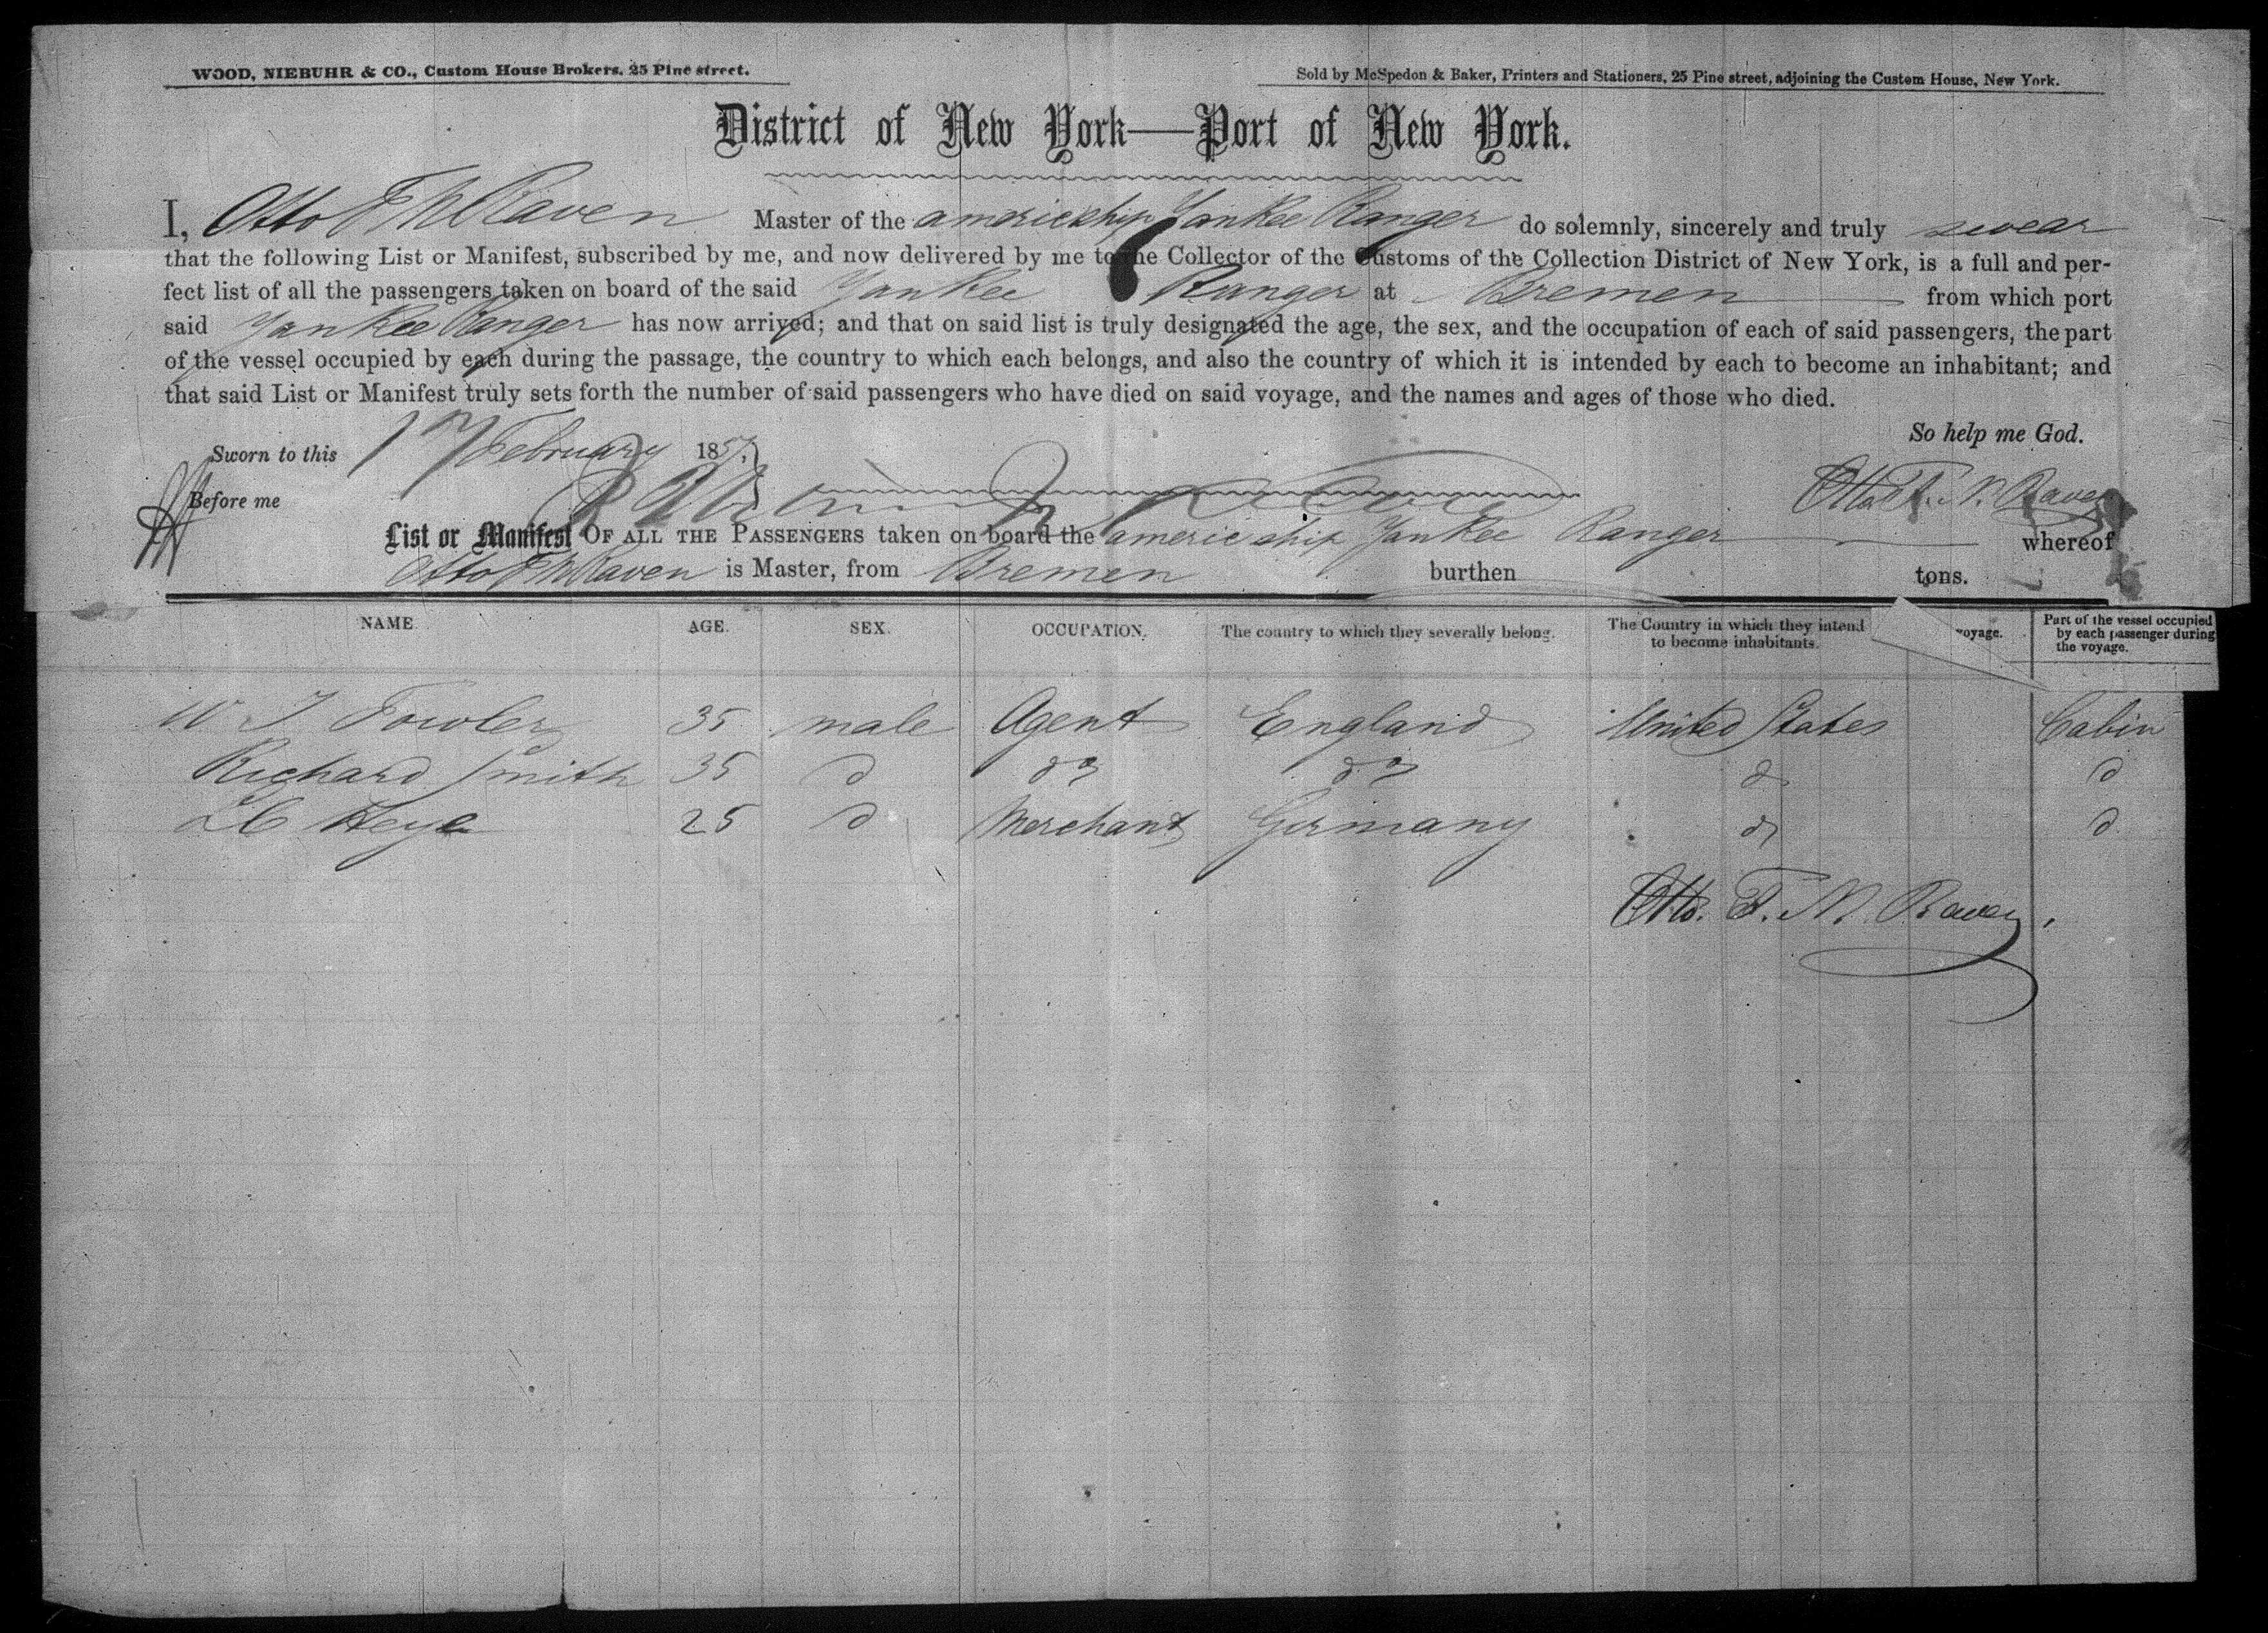 WOOD, NIEBUHR & CO., Custom House Brokers, 25 Pine street.
Sold by McSpedon & Baker, Printers and Stationers, 25 Pine street, adjoining the Custom House, New York.
District of New York—Port of New York.
I, Otto F W Raven Master of the americ ship Yankee Ranger do solemnly, sincerely and truly swear
that the following List or Manifest, subscribed by me, and now delivered by me to the Collector of the Customs of the Collection District of New York, is a full and per-
fect list of all the passengers taken on board of the said Yankee Ranger at Bremen from which port
said Yankee Ranger has now arrived; and that on said list is truly designated the age, the sex, and the occupation of each of said passengers, the part
of the vessel occupied by each during the passage, the country to which each belongs, and also the country of which it is intended by each to become an inhabitant; and
that said List or Manifest truly sets forth the number of said passengers who have died on said voyage, and the names and ages of those who died.
So help me God.
Sworn to this 17 February 1857
Before me
Otto F. W. Raven
List or Manifest OF ALL THE PASSENGERS taken on board the americ ship Yankee Ranger whereof
Otto F W Raven is Master, from Bremen burthen tons.
NAME. AGE. SEX. OCCUPATION. The country to which they severally belong. The Country in which they intend to become inhabitants. voyage. Part of the vessel occupied by each passenger during the voyage.
W J Fowler 35 male Agent England United States Cabin
Richard Smith 35 d do do d d
Heye 25 d Merchant Germany do d
Otto. F. W. Raven.